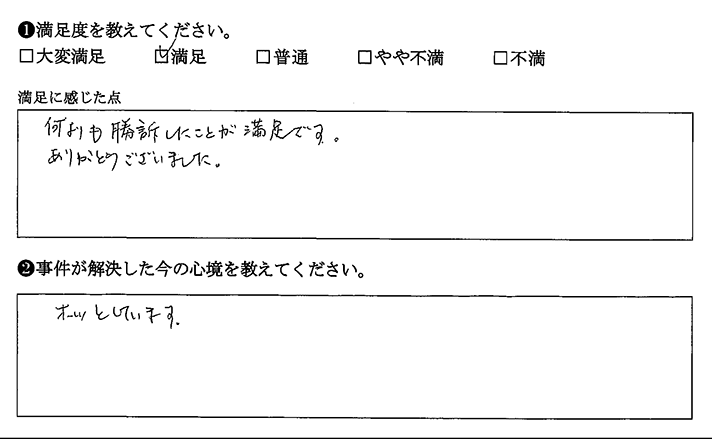 ❶満足度を教えてください。
□大変満足 ☑満足 □普通 □やや不満 □不満
満足に感じた点
何よりも勝訴したことが満足です。
ありがとうございました。
❷事件が解決した今の心境を教えてください。
ホッとしています。